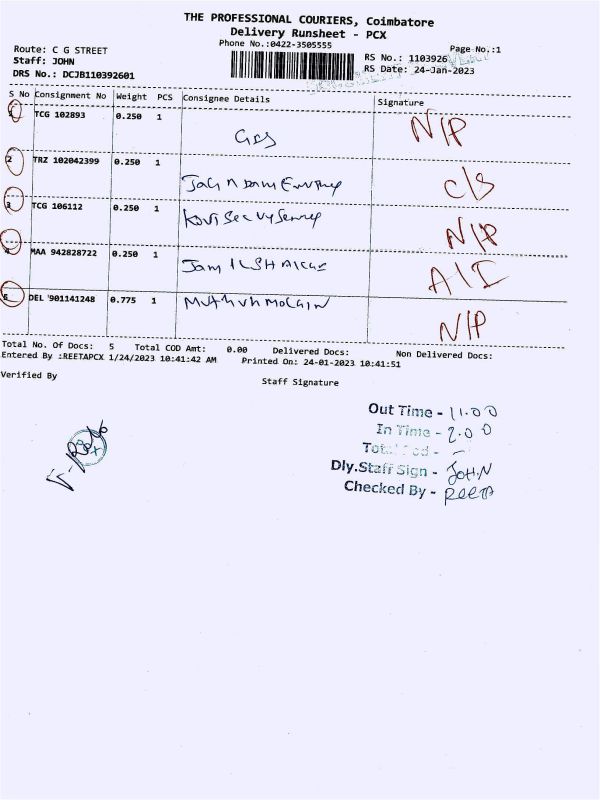 THE PROFESSIONAL COURIERS, Coimbatore
Delivery Runsheet - PCX
Phone No.:0422-3505555
Page No.:1
Route: C G STREET
Staff: JOHN
DRS No.: DCJB110392601
RS No.: 1103926
RS Date: 24-Jan-2023
S No Consignment No Weight PCS Consignee Details Signature
1 TCG 102893 0.250 1 N/P
2 TRZ 102042399 0.250 1 C/S
3 TCG 106112 0.250 1 N/P
4 MAA 942828722 0.250 1 A/I
5 DEL 901141248 0.775 1 N/P
Total No. Of Docs: 5 Total COD Amt: 0.00 Delivered Docs: Non Delivered Docs:
Entered By :REETAPCX 1/24/2023 10:41:42 AM Printed On: 24-01-2023 10:41:51
Verified By
Staff Signature
Out Time - 11.00
In Time - 2.00
Dly.Staff Sign - JOHN
Checked By - REETA